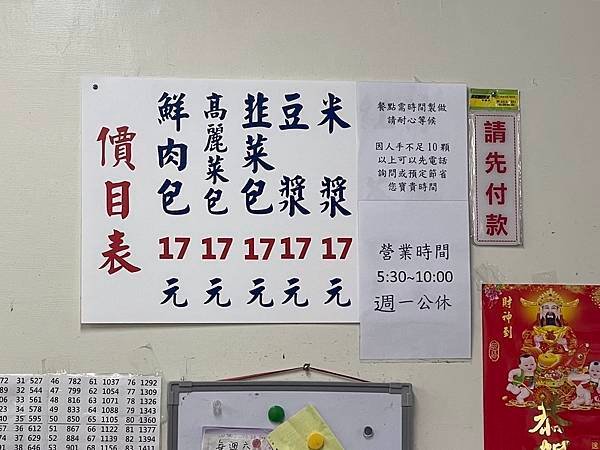 價目表
鮮肉包 17元
高麗菜包 17元
韭菜包 17元
豆漿 17元
米漿 17元
餐點需時間製做
請耐心等候
因人手不足10顆
以上可以先電話
詢問或預定節省
您寶貴時間
營業時間
5:30~10:00
週一公休
請先付款
財神到
恭
72 31 527 46 782 61 1037 76 1292
89 32 544 47 799 62 1054 77 1309
06 33 561 48 816 63 1071 78 1326
23 34 578 49 833 64 1088 79 1343
40 35 595 50 850 65 1105 80 1360
57 36 612 51 867 66 1122 81 1377
74 37 629 52 884 67 1139 82 1394
91 38 646 53 901 68 1156 83 1411
每週六